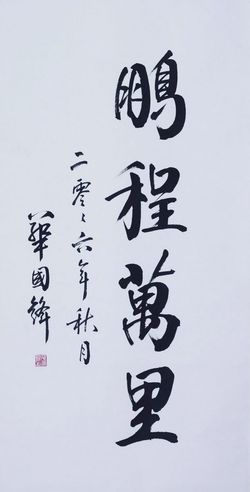 鹏程萬里
二零零六年秋月
華國鋒